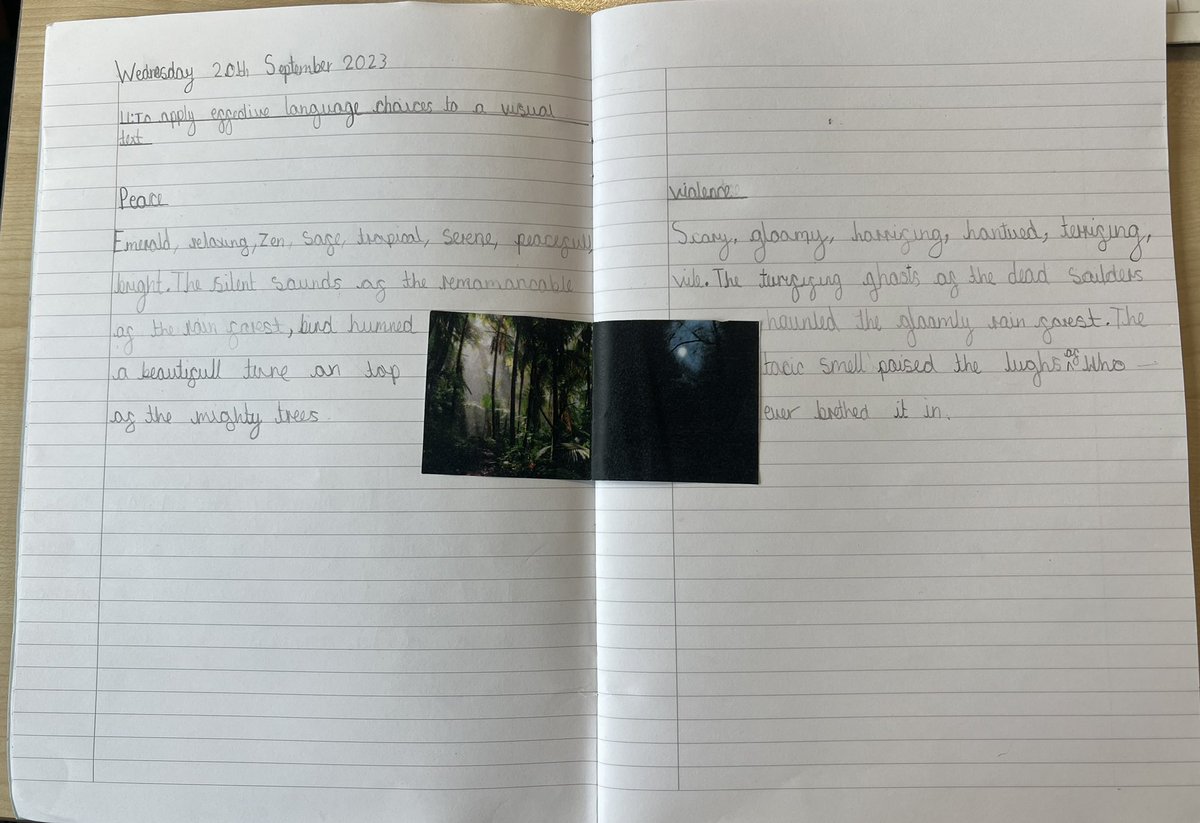 Wednesday 20th September 2023
LI:To apply effective language choices to a visual
text
Peace
Emerald, relaxing, Zen, Sage, tropical, Serene, peacefull,
bright. The Silent Sounds of the remamarcable
of the rain forest, bird humned
a beautifull tune on top
of the mighty trees
violence
Scary, gloomy, horrifing, hantued, terrifing,
vile. The turifiing ghosts of the dead Soulders
haunted the gloomly rain forest. The
toxic smell poised the lughs of who
ever brethed it in.